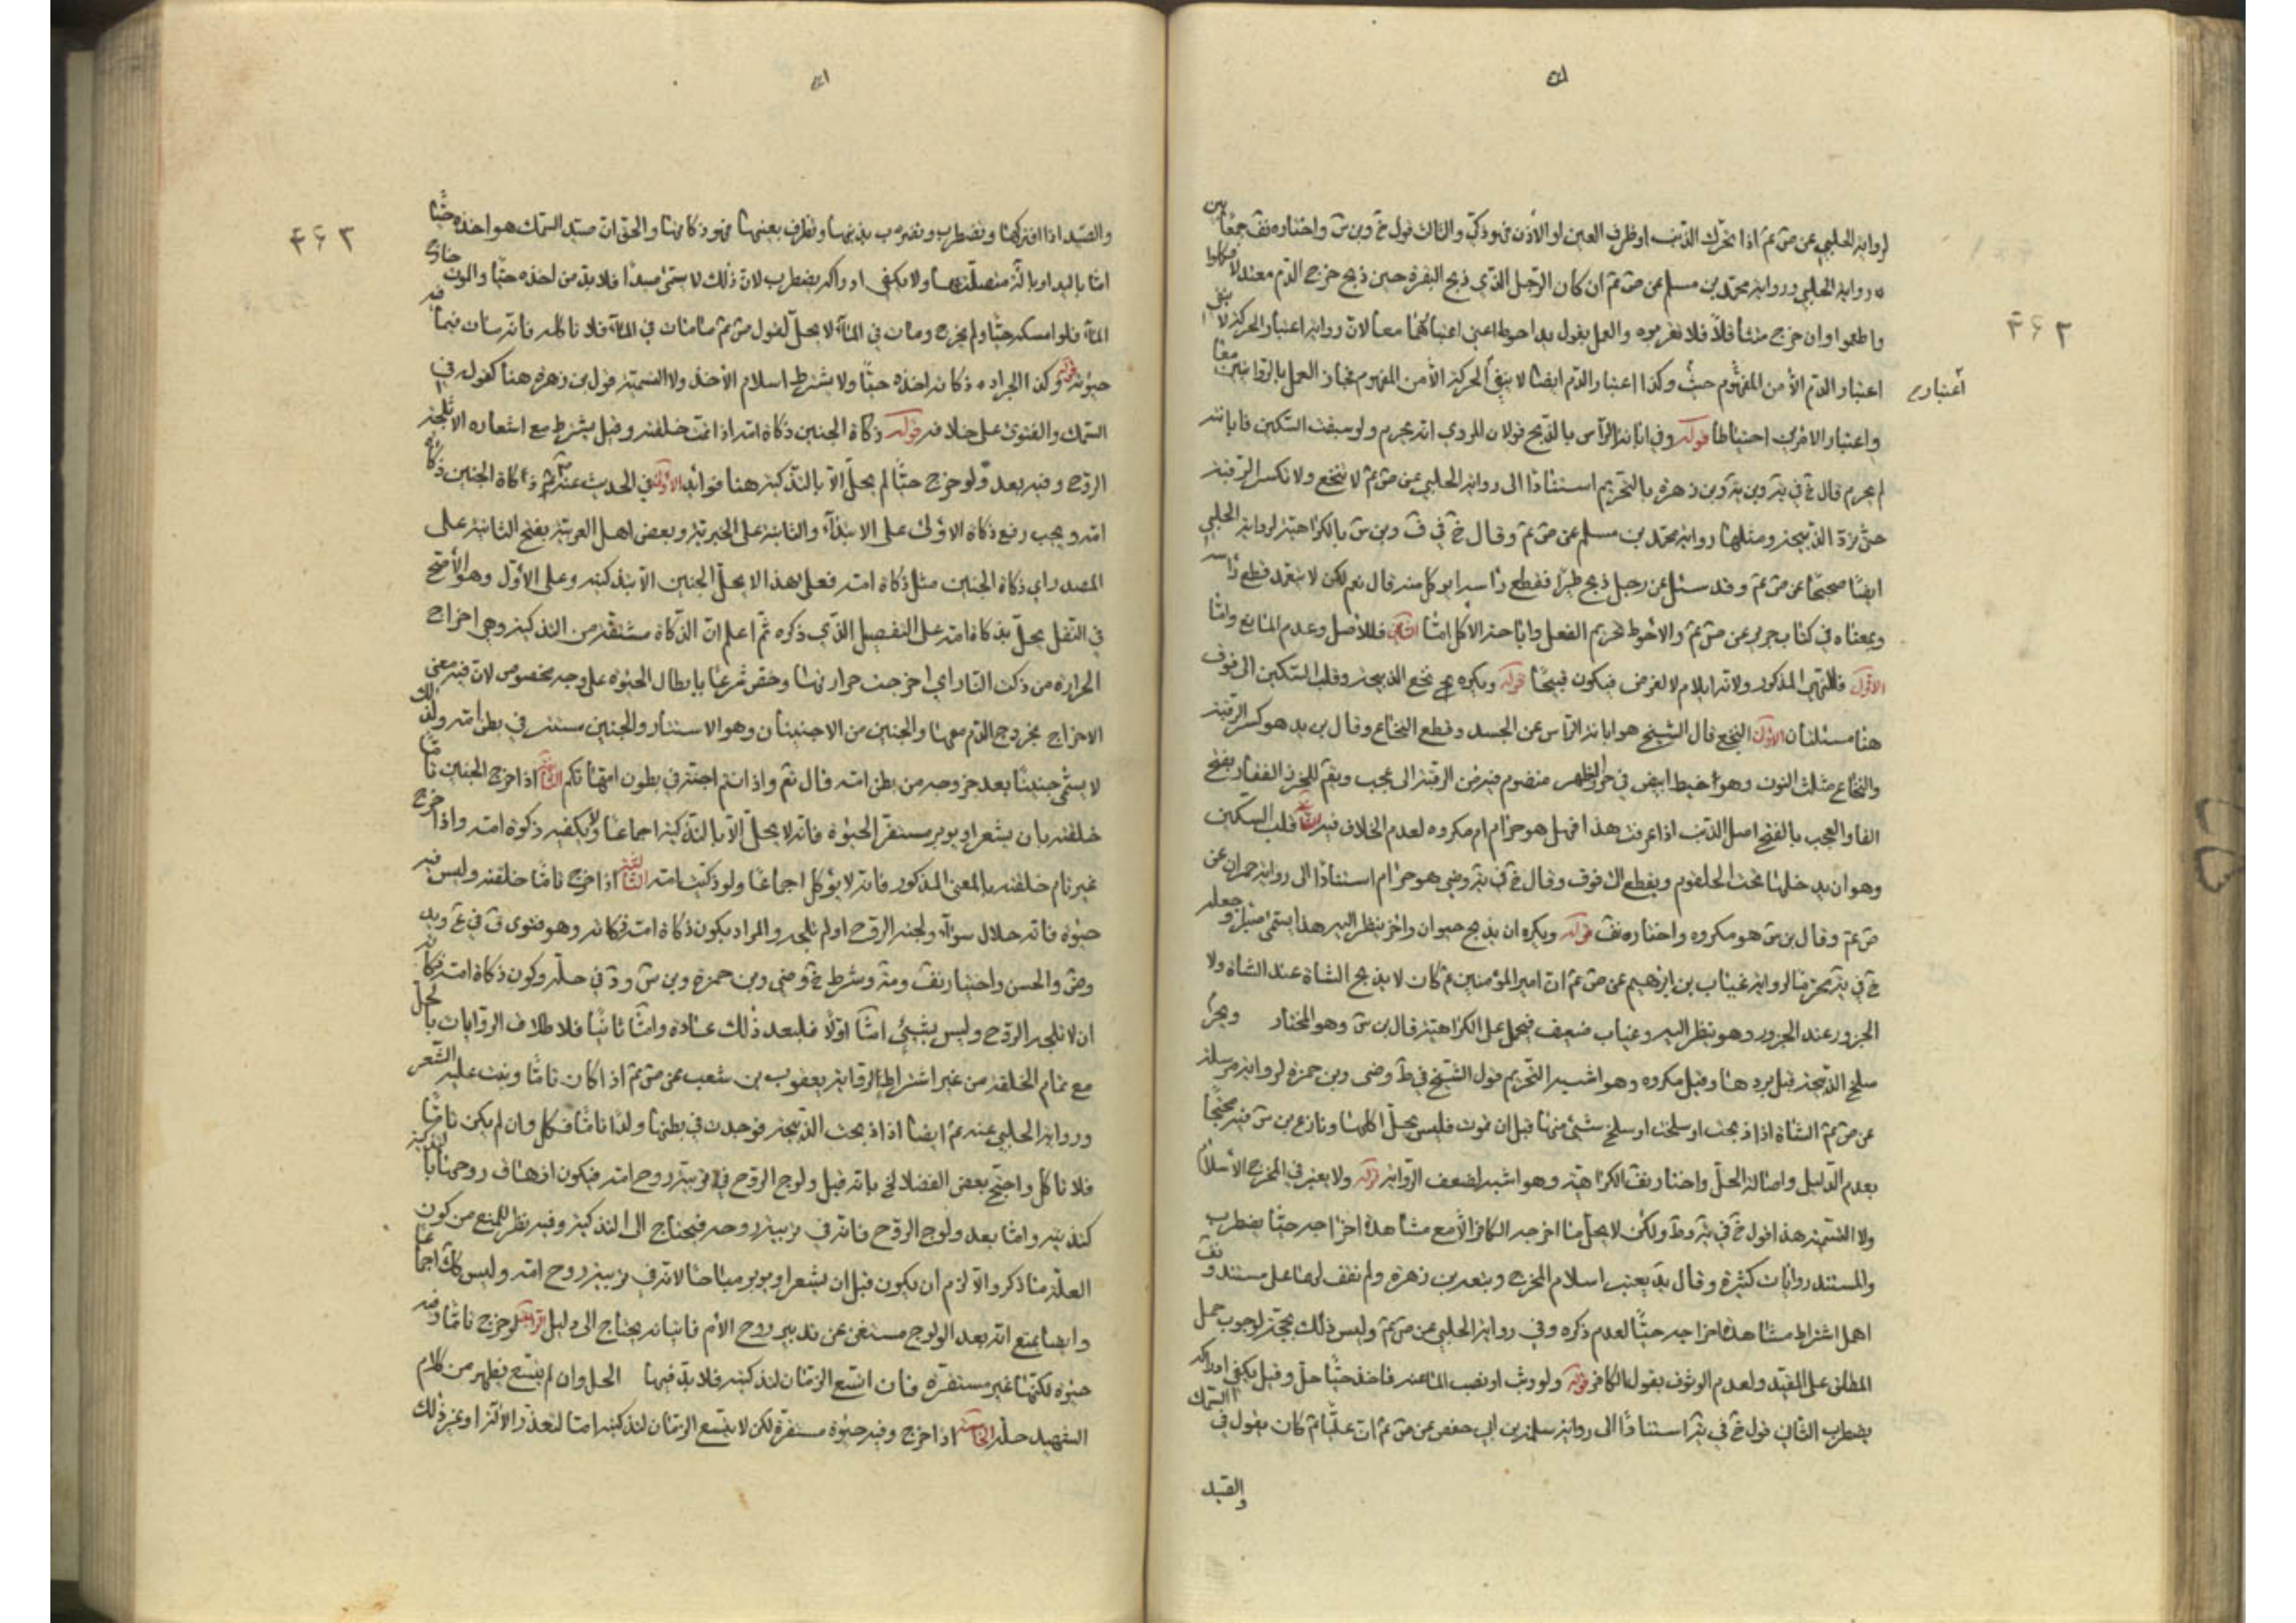 لرواية الحلبي عن ص عم اذا تحرك الذنب او طرف العين او الاذن فهو ذكي والثالث قول خ وبن س واختاره نف جمعًا بين
رواية الحلبي ورواية محمد بن مسلم عن ص عم ان كان الرجل الذي ذبح البقرة حين ذبح خرج الدم معتدلا فكلوا
واطعموا وان خرج متثاقلًا فلا تقربوه والعمل بقول يد احوط اعني اعتبارهما معا لان رواية اعتبار الحركة لا ينفي
اعتبار الدم الا من المفهوم حيث وكذا اعتبار الدم ايضا لا ينفي الحركة الا من المفهوم فجاز العمل بالروايتين معا
اعتباره
واعتبار الامرين احتياطا قوله وفي ابانة الراس بالذبح قولان المروي انه يحرم ولو سبقت السكين فابانته
لم يحرم قال خ في ية وبن زهرة بالتحريم استنادًا الى رواية الحلبي عن ص عم لا تنخع ولا تكسر الرقبة
حتى تبرد الذبيحة ومثلها رواية محمد بن مسلم عن ص عم وقال خ في ف وبن س بالكراهية لرواية الحلبي
ايضًا صحيحًا عن ص عم وقد سئل عن رجل ذبح طيرًا فقطع راسه ايوكل منه قال نعم لكن لا يتعمد قطع راسه
وبمعناه في كتاب حريز عن ص عم والاحوط تحريم الفعل واباحة الاكل امّا الثاني فللاصل وعدم المانع وامّا
الاوّل فللنهي المذكور ولانه ايلام لا لغرض فيكون قبيحًا قوله ويكره نخع الذبيحة وقلب السكين الى فوق
هنا مسئلتان الاولى النخع قال الشيخ هو ابانة الراس عن الجسد وقطع النخاع وقال بن يد هو كسر الرقبة
والنخاع مثلث النون وهو خيط ابيض في خرز الظهر منضوم فيه من الرقبة الى عجب ويقم للخرز الفقار بفتح
الفا والعجب بالفتح اصل الذنب اذا عرفت هذا فهل هو حرام ام مكروه لعدم الخلاف فيه الثانية قلب السكين
وهو ان يدخلها تحت الحلقوم ويقطع الى فوق وقال خ في ية وضى هو حرام استنادًا الى رواية حمران عن
ص عم وقال بن س هو مكروه واختاره نف قوله ويكره ان يذبح حيوان واخر ينظر اليه هذا يسمى صبرًا وجعله
خ في ية محرمًا لرواية غياث بن ابرهيم عن ص عم ان امير المؤمنين عم كان لا يذبح الشاة عند الشاة ولا
الجزور عند الجزور وهو ينظر اليه وغياث ضعيف فيحمل على الكراهية قال بن س وهو المختار ويحرم
سلخ الذبيحة قبل بردها وقيل مكروه وهو اشبه التحريم قول الشيخ في ط وضى وبن حمزة لرواية مرسلة
عن ص عم الشاة اذا ذبحت او سلخت او سلخ شيئ منها قبل ان تموت فليس يحل اكلها ونازع بن س فيه محتجًا
بعدم الدليل واصالة الحل واختار نف الكراهية وهو اشبه لضعف الرواية قوله ولا يعتبر في المخرج الاسلام
ولا التسمية هذا قول خ في ية وط ولكن لا يحل ما اخرجه الكافر الا مع مشاهدة اخراجه حيًا يضطرب
والمستند روايات كثيرة وقال يد يعتبر اسلام المخرج وتبعه بن زهرة ولم نقف لهما على مستند ونف
اهمل اشتراط مشاهدة اخراجه حيًا لعدم ذكره وفي رواية الحلبي عن ص عم وليس ذلك بحجة لوجوب حمل
المطلق على المقيد ولعدم الوثوق بقول الكافر قوله ولو وثب او نضب الماء عنه فاخذ حيًا حل وقيل يكفي ادراكه
يضطرب الثاني قول خ في ية استنادًا الى رواية سلمة بن ابي حفص عن ص عم ان عليًا عم كان يقول في السمك
والصيد
والصيد اذا ادركها وتضطرب وتضرب بذنبها وتطرف بعينها فهو ذكاتها والحق ان صيد السمك هو اخذه حيًا
امّا باليد او بالة متصلة بها ولا يكفي ادراكه يضطرب لان ذلك لا يسمى صيدًا فلا بد من اخذه حيًا والموت خارج
الماء فلو امسكه حيًا ولم يخرج ومات في الماء لا يحل لقول ص عم ما مات في الماء فلا تاكله فانه مات فيما فيه
حيوته قوله وكذا الجراد ذكاته اخذه حيًا ولا يشترط اسلام الاخذ ولا التسمية قول بن زهرة هنا كقوله في
السمك والفتوى على خلافه قوله ذكاة الجنين ذكاة امه اذا تمت خلقته وقيل يشترط مع اشعاره الا تلجه
الروح وفيه بعد ولو خرج حيًا لم يحل الا بالتذكية هنا فوائد الاولى في الحديث عنه عم ذكاة الجنين ذكاة
امه ويجب رفع ذكاة الاولى على الابتداء والثانية على الخبرية وبعض اهل العربية بفتح الثانية على
المصدر اي ذكاة الجنين مثل ذكاة امه فعلى هذا لا يحل الجنين الا بتذكيته وعلى الاول وهو الاصح
في النقل يحل بذكاة امه على التفصيل الذي ذكره ثم اعلم ان الذكاة مشتقة من التذكية وهي اخراج
الحرارة من ذكت النار اي اخرجت حرارتها وخص شرعًا بابطال الحيوة على وجه مخصوص لان فيه معنى
الاخراج بخروج الدم معها والجنين من الاجتنان وهو الاستتار والجنين مستتر في بطن امه ولذلك
لا يسمى جنينًا بعد خروجه من بطن امه قال تع واذ انتم اجنة في بطون امهاتكم الثانية اذا خرج الجنين تامًا
خلقته بان يشعر او يوبر مستقر الحيوة فانه لا يحل الا بالتذكية اجماعًا ولا يكفيه ذكوة امه واذا خرج
غير تام خلقته بالمعنى المذكور فانه لا يؤكل اجماعًا ولو ذكيت امه الثالثة اذا خرج تامًا خلقته وليس فيه
حيوة فانه حلال سواء ولجته الروح او لم تلجه والمراد يكون ذكاة امه ذكاته وهو فتوى ف في ع ويد
وض والحسن واختيار نف ومه وشرط خ وضى وبن حمزة وبن س ود في حله وكون ذكاة امه ذكاته
ان لا تلجه الروح وليس بشيئ امّا اولًا فلبعد ذلك عادة وامّا ثانيًا فلاطلاق الروايات بالحل
مع تمام الخلقة من غير اشتراط لرواية يعقوب بن شعيب عن ص عم اذا كان تامًا ونبت عليه الشعر
ورواية الحلبي عنه عم ايضا اذا ذبحت الذبيحة فوجدت في بطنها ولدًا تامًا فكل وان لم يكن تامًا
فلا تاكل واحتج بعض الفضلا بانه قبل ولوج الروح في تربية روح امه فيكون ازهاق روحها بالتذكية
كتذكيته وامّا بعد ولوج الروح فانه في تربية روحه فيحتاج الى التذكية وفيه نظر للمنع من كون
العلة ما ذكر والا لزم ان يكون قبل ان يشعر او يوبر مباحا لانه في تربية روح امه وليس كك اجماعًا
وايضا يمنع انه بعد الولوج مستغن عن تدبير روح الام فاثباته يحتاج الى دليل الرابعة لو خرج تامًا وفيه
حيوة لكنها غير مستقرة فان اتسع الزمان لتذكيته فلا بد فيها الحل وان لم يتسع فظهر من كلام
الشهيد حله الخامسة اذا خرج وفيه حيوة مستقرة لكن لا يتسع الزمان لتذكيته امّا لتعذر الالة او غير ذلك